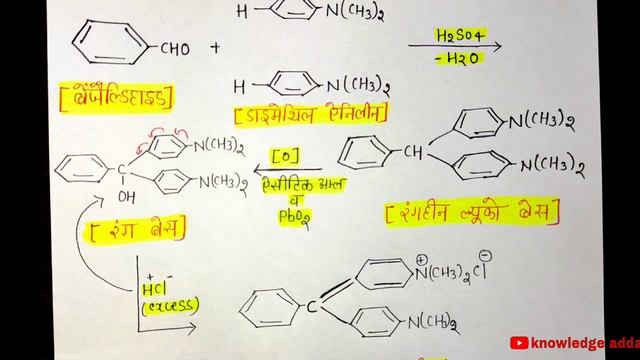 H-N(CH3)2
CHO + H2SO4
-H2O
H-N(CH3)2
[बेंजैल्डिहाइड]
[डाइमेथिल ऐनिलीन]
N(CH3)2
N(CH3)2
C
OH
[O]
ऐसीटिक अम्ल
व
PbO2
CH
N(CH3)2
N(CH3)2
[रंग बेस]
[रंगहीन ल्यूको बेस]
H+Cl-
(excess)
C
⊕N(CH3)2Cl⊖
N(CH3)2
knowledge adda